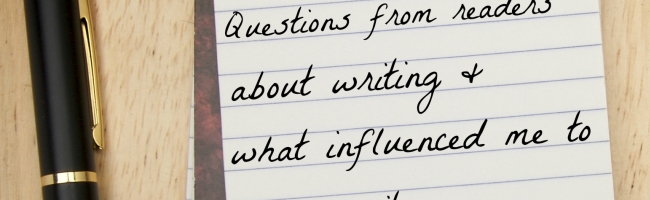 Questions from readers
about writing &
what influenced me to